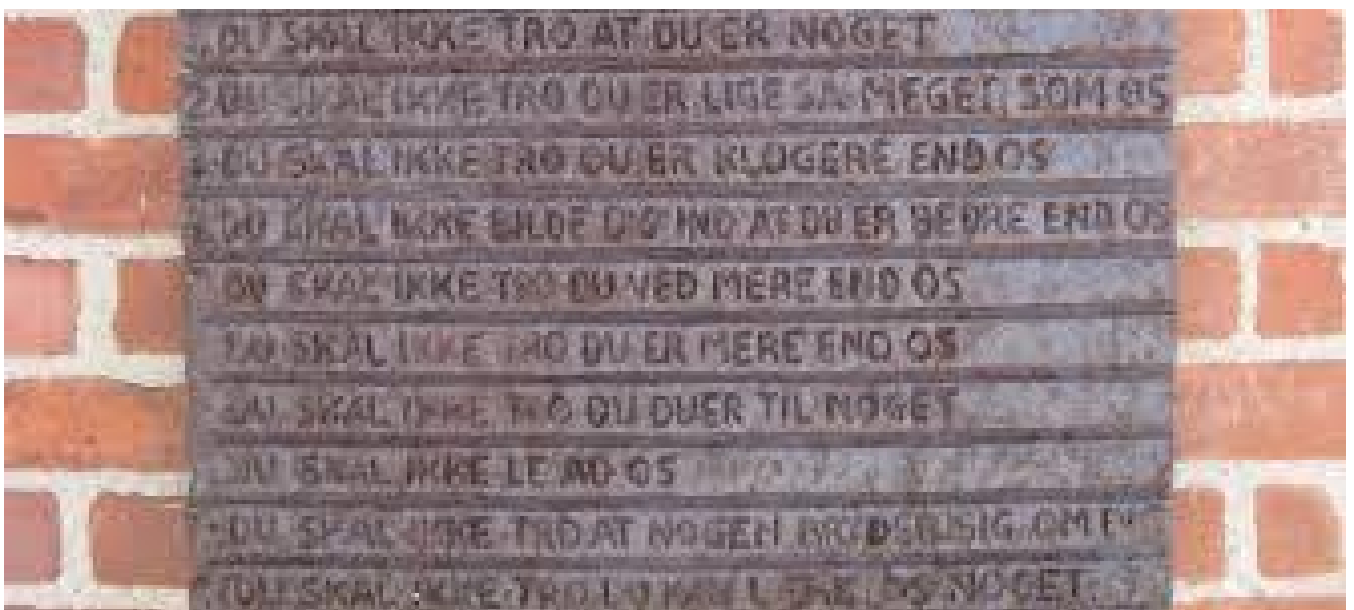 DU SKAL IKKE TRO AT DU ER NOGET
2. DU SKAL IKKE TRO DU ER LIGE SA MEGET SOM OS
DU SKAL IKKE TRO DU ER KLOGERE END OS
DU SKAL IKKE BILDE DIG IND AT DU ER BEDRE END OS
DU SKAL IKKE TRO DU VED MERE END OS
DU SKAL IKKE TRO DU ER MERE END OS
DU SKAL IKKE TRO DU DUER TIL NOGET
DU SKAL IKKE LE AD OS
DU SKAL IKKE TRO AT NOGEN SIG OM
DU SKAL IKKE TRO DU KAN OS NOGET